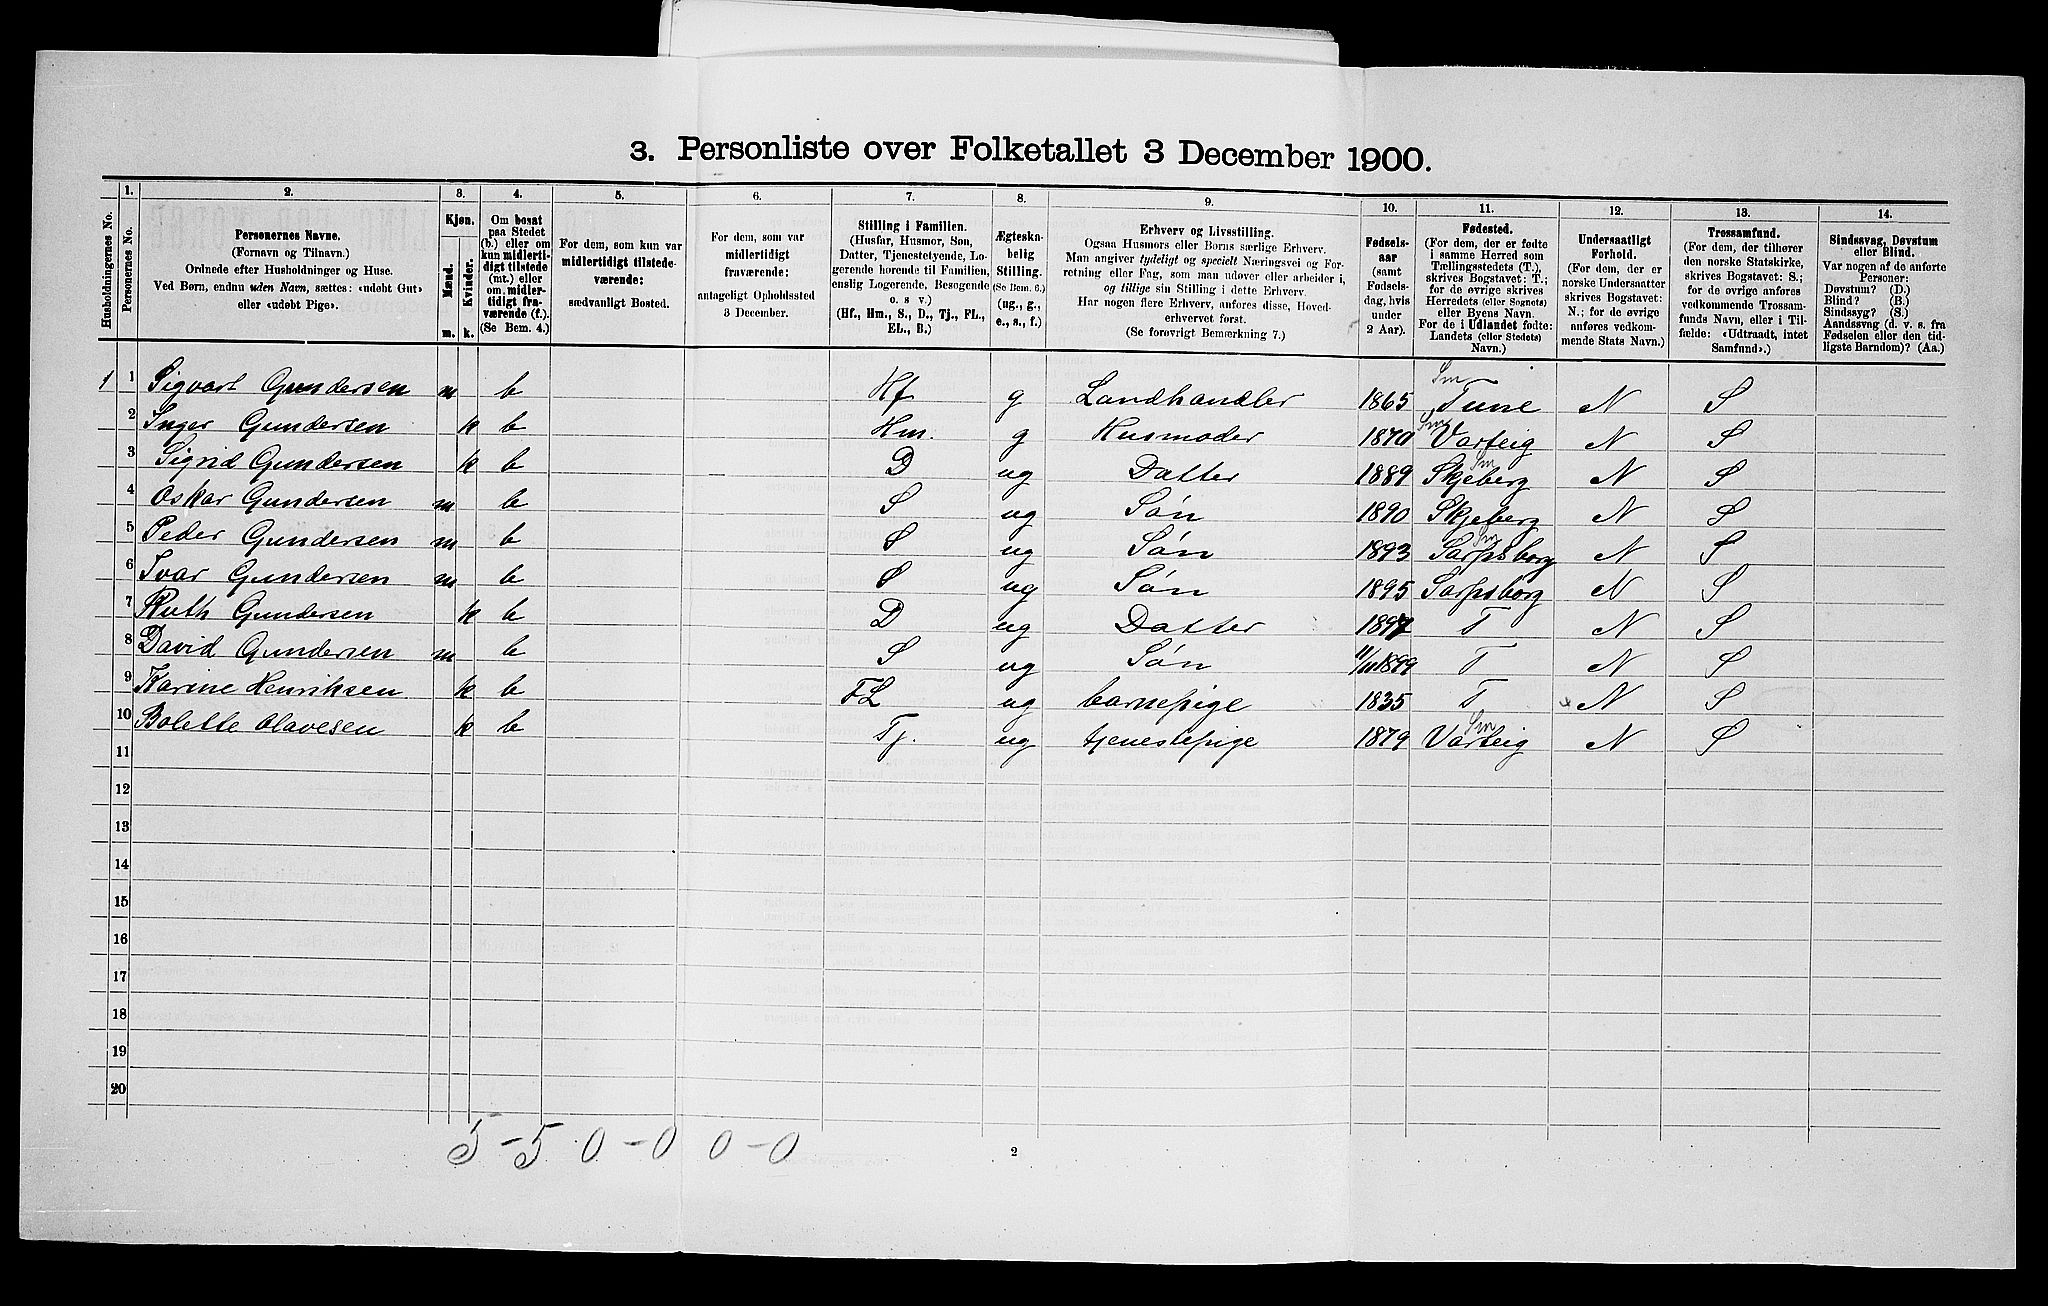 3. Personliste over Folketallet 3 December 1900.
Husholdningernes No.
1. Personernes No.
2. Personernes Navne. (Fornavn og Tilnavn.) Ordnede efter Husholdninger og Huse. Ved Børn, endnu uden Navn, sættes: «udøbt Gut» eller «udøbt Pige».
3. Kjøn. Mænd. m. Kvinder. k.
4. Om bosat paa Stedet (b.) eller om kun midlertidigt tilstede (mt.) eller om midlertidigt fraværende (f.). (Se Bem. 4.)
5. For dem, som kun var midlertidigt tilstedeværende: sædvanligt Bosted.
6. For dem, som var midlertidigt fraværende: antageligt Opholdssted 3 December.
7. Stilling i Familien. (Husfar, Husmor, Søn, Datter, Tjenestetyende, Logerende hørende til Familien, enslig Logerende, Besøgende o. s v.) (Hf., Hm., S., D., Tj., FL., EL., B.)
8. Ægteskabelig Stilling. (Se Bem. 6.) (ug., g., e., s., f.)
9. Erhverv og Livsstilling. Ogsaa Husmors eller Børns særlige Erhverv. Man angiver tydeligt og specielt Næringsvei og Forretning eller Fag, som man udøver eller arbeider i, og tillige sin Stilling i dette Erhverv. Har nogen flere Erhverv, anføres disse, Hovederhvervet først. (Se forøvrigt Bemærkning 7.)
10. Fødselsaar (samt Fødselsdag, hvis under 2 Aar).
11. Fødested. (For dem, der er fødte i samme Herred som Tællingsstedets (T.), skrives Bogstavet: T.; for de øvrige skrives Herredets (eller Sognets) eller Byens Navn. For de i Udlandet fødte: Landets (eller Stedets) Navn.)
12. Undersaatligt Forhold. (For dem, der er norske Undersaatter skrives Bogstavet: N.; for de øvrige anføres vedkommende Stats Navn.)
13. Trossamfund. (For dem, der tilhører den norske Statskirke, skrives Bogstavet: S.; for de øvrige anføres vedkommende Trossamfunds Navn, eller i Tilfælde: «Udtraadt, intet Samfund».)
14. Sindssvag, Døvstum eller Blind. Var nogen af de anførte Personer: Døvstum? (D.) Blind? (B.) Sindssyg? (S.) Aandssvag (d. v. s. fra Fødselen eller den tidligste Barndom)? (Aa.)
1 1 Sigvart Gundersen m b Hf g Landhandler 1865 Sm Tune N S
2 Inger Gundersen k b Hm. g Husmoder 1870 Sm Varteig N S
3 Sigrid Gundersen k b D ug Datter 1889 Skjeberg Sm N S
4 Oskar Gundersen m b S ug Søn 1890 Skjeberg N S
5 Peder Gundersen m b S ug Søn 1893 Sarpsborg Sm N S
6 Ivar Gundersen m b S ug Søn 1895 Sarpsborg N S
7 Ruth Gundersen k b D ug Datter 1897 T N S
8 David Gundersen m b S ug Søn 11/11 1899 T N S
9 Karine Henriksen k b FL ug barnepige 1835 T N S
10 Bolette Olavesen k b Tj. ug tjenestepige 1879 Varteig Sm N S
11
12
13
14
15
16
17
18
19
20
5 - 5 0 - 0 0 - 0
2